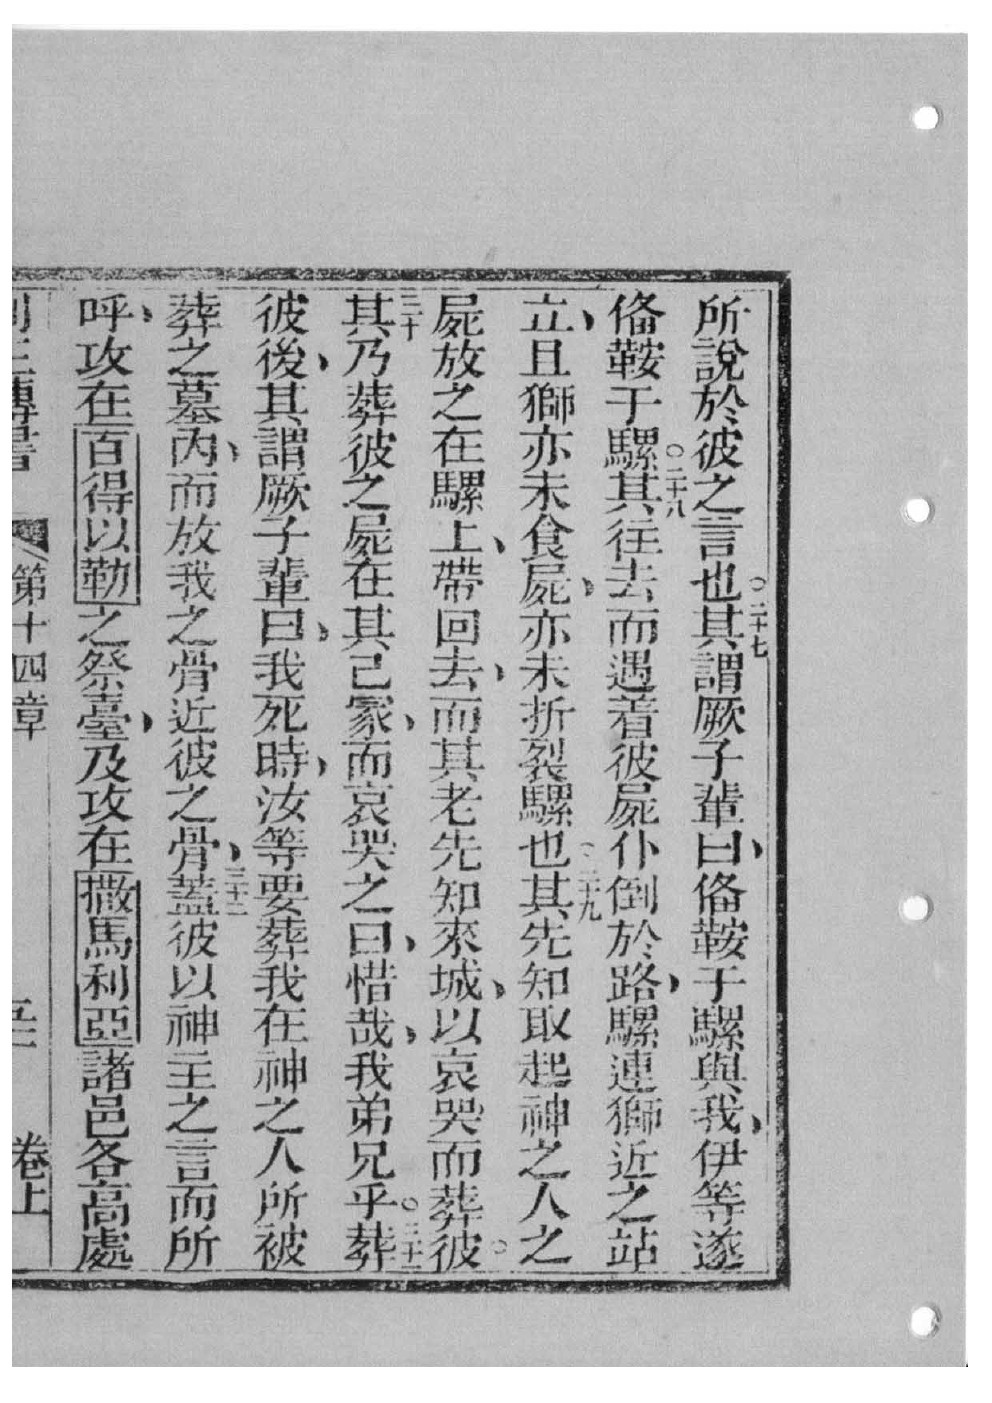 所說於彼之言也○二十七其謂厥子輩曰、俻鞍于騾與我、伊等遂
俻鞍于騾○二十八其往去而遇着彼屍仆倒於路、騾連獅近之站
立、且獅亦未食屍、亦未折裂騾也○二十九其先知取起神之人之
屍放之在騾上、帶回去、而其老先知來城、以哀哭而葬彼○
三十其乃葬彼之屍在其己冢、而哀哭之曰、惜哉、我弟兄乎○三十一葬
彼後、其謂厥子輩曰、我死時、汝等要葬我在神之人所被
葬之墓內、而放我之骨近彼之骨、三十二蓋彼以神主之言而所
呼、攻在百得以勒之祭臺、及攻在撒馬利亞諸邑各高處
列王傳書 第十四章 卷上